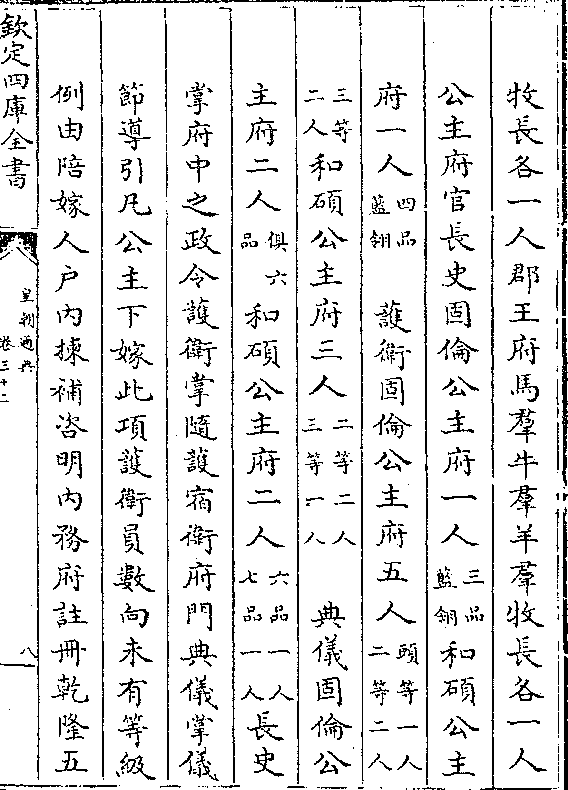 牧長各一人郡王府馬羣牛羣羊羣牧長各一人
公主府官長史固倫公主府一人三品藍翎和碩公主
府一人四品藍翎 護衛固倫公主府五人頭等一人二等二人
三等二人和碩公主府三人二等二人三等一人 典儀固倫公
主府二人俱六品和碩公主府二人六品一人七品一人長史
掌府中之政令護衛掌隨護宿衛府門典儀掌儀
節導引凡公主下嫁此項護衛員數向未有等級
例由陪嫁人户内揀補咨明内務府註冊乾隆五
欽定四庫全書
皇朝通典
卷三十二
八